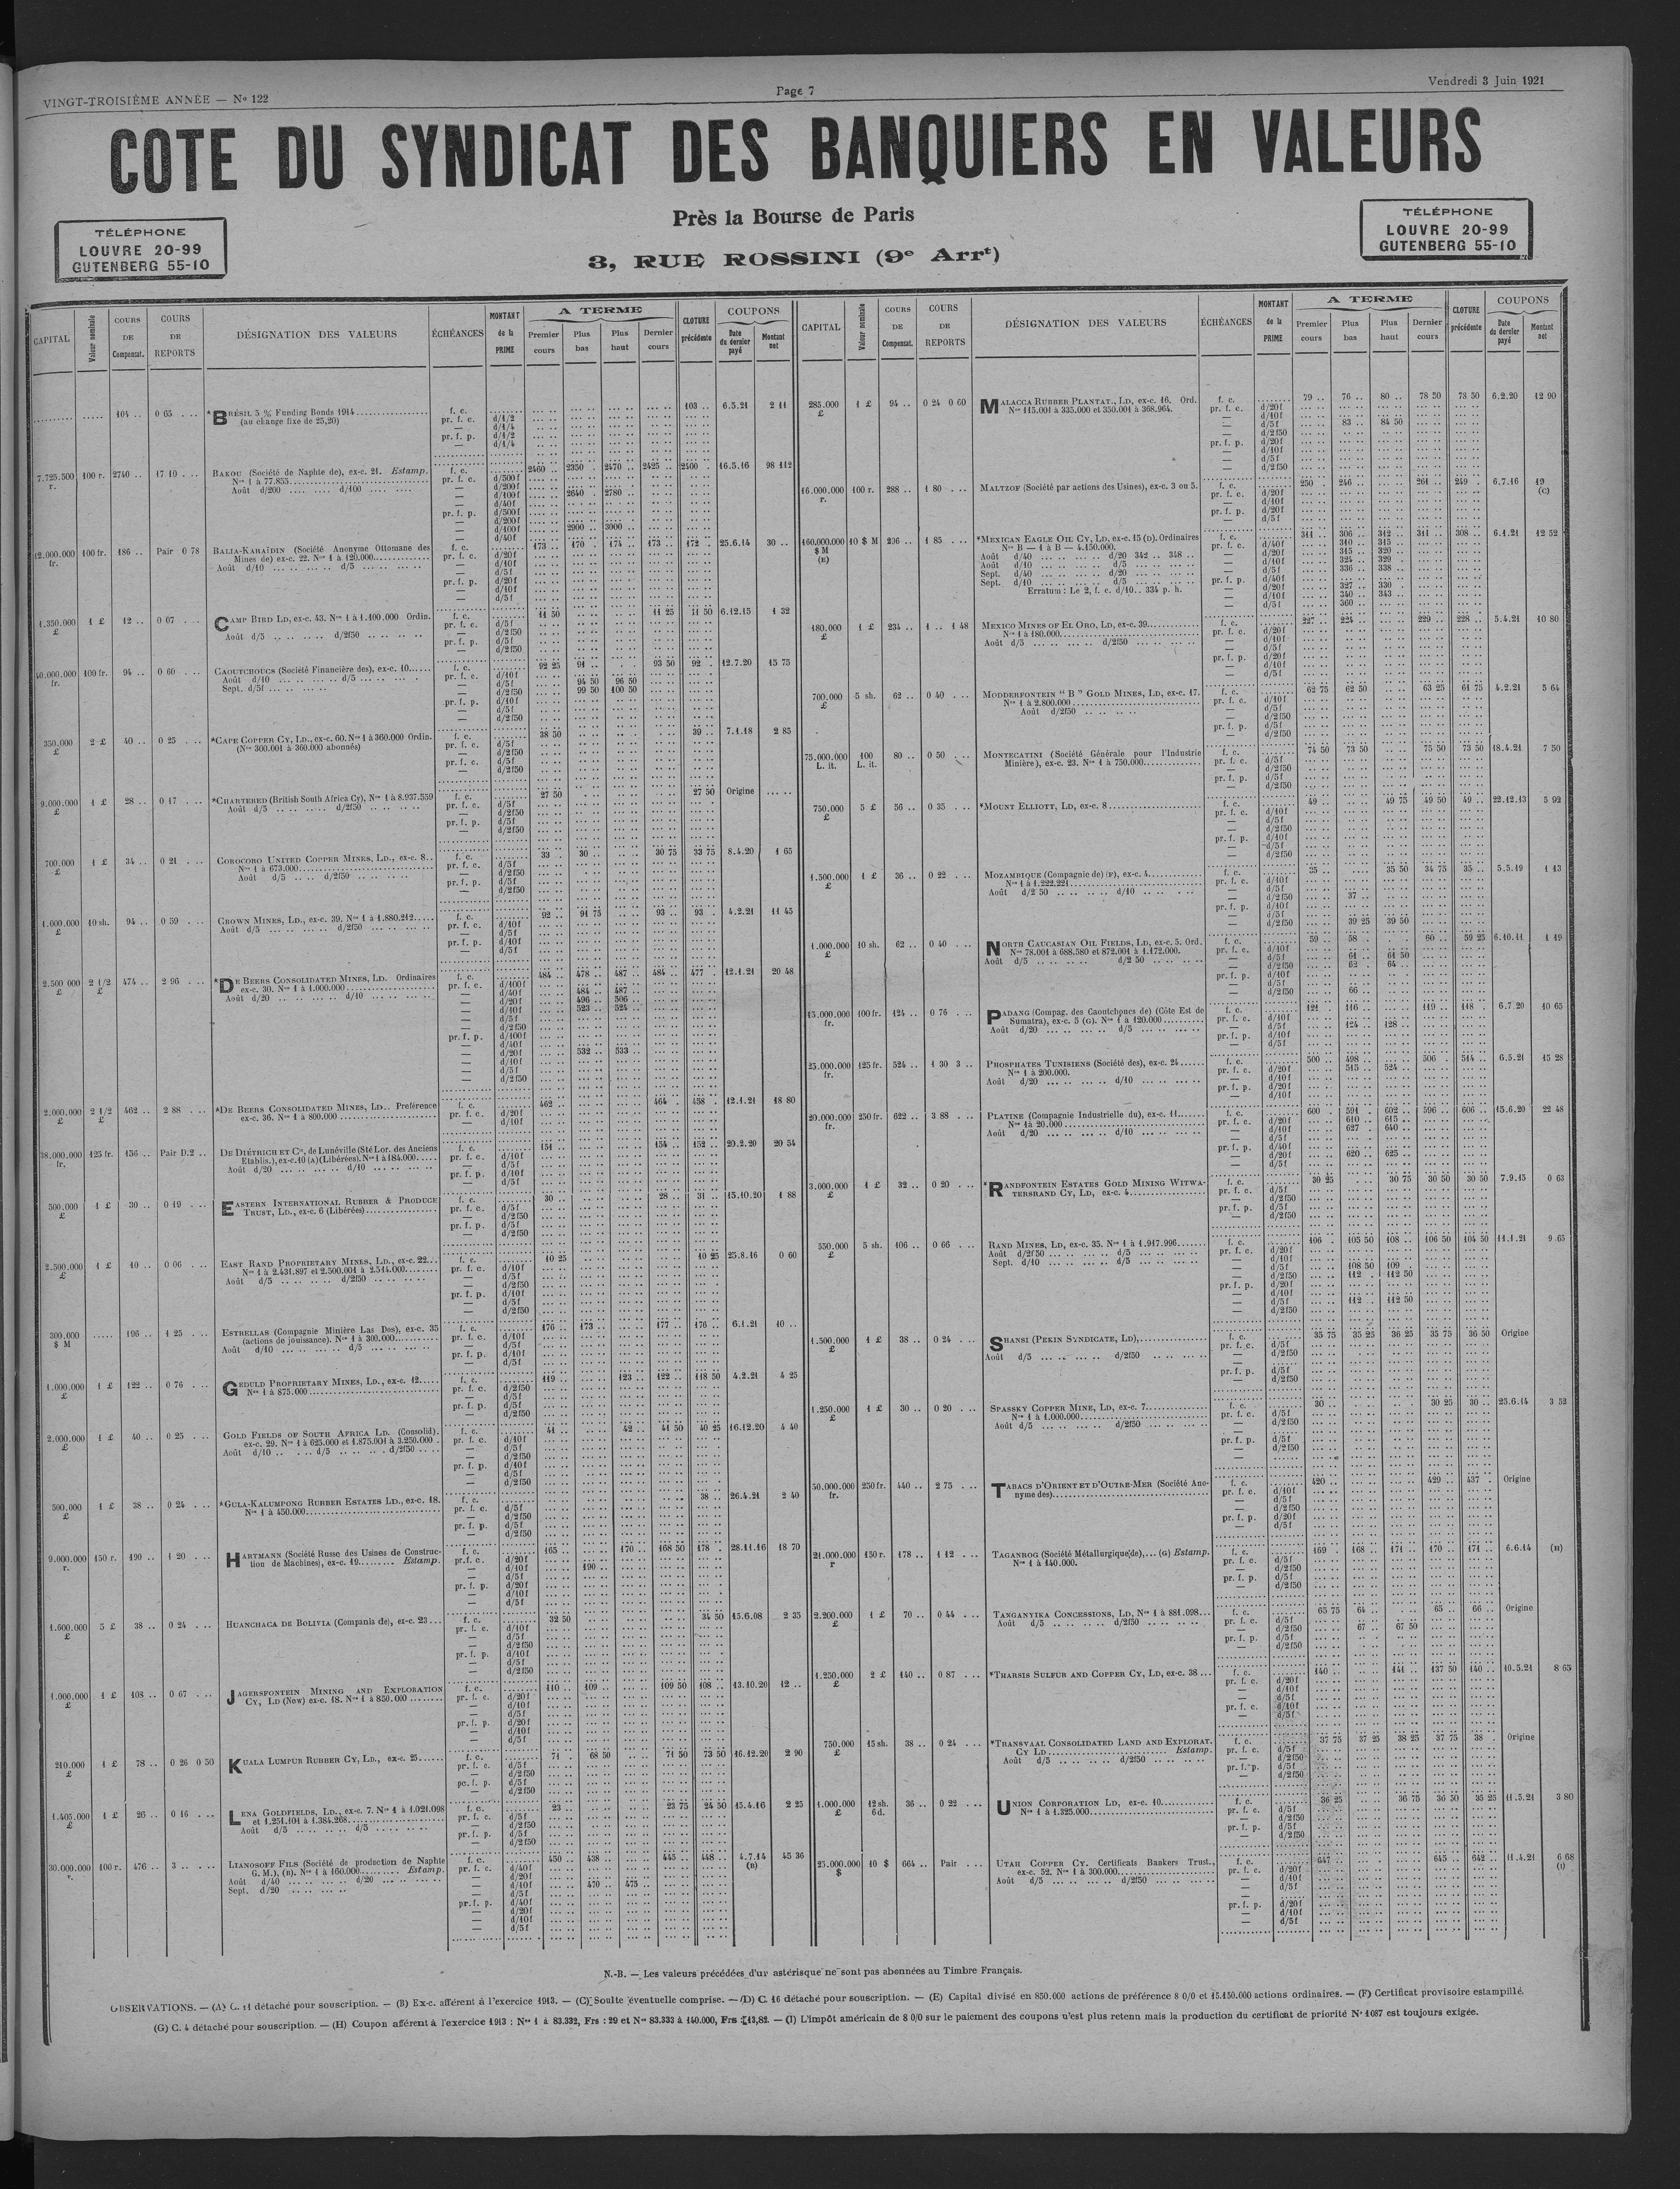 VINGT-TROISIÈME ANNÉE — No 122
Page 7
Vendredi 3 Juin 1921
COTE DU SYNDICAT DES BANQUIERS EN VALEURS
Près la Bourse de Paris
3, RUE ROSSINI (9e Arrt)
TÉLÉPHONE
LOUVRE 20-99
GUTENBERG 55-10
TÉLÉPHONE
LOUVRE 20-99
GUTENBERG 55-10
CAPITAL
Valeur nominale
COURS DE Compensat.
COURS DE REPORTS
DÉSIGNATION DES VALEURS
ÉCHÉANCES
MONTANT de la PRIME
A TERME
Premier cours
Plus bas
Plus haut
Dernier cours
CLOTURE précédente
COUPONS
Date du dernier payé
Montant net
104 .. 0 65 *BRÉSIL 5 % Funding Bonds 1914 f. c. 103 .. 6.5.21 2 11
(au change fixe de 25,20)
7.725.500 r. 100 r. 2740 .. 17 10 BAKOU (Société de Naphte de), ex-c. 21. Estamp. f. c. 2460 .. 2350 . 2470 .. 2425 .. 2400 . 16.5.16 98 112
Nos 1 à 77.855
Août d/200 .... d/100
2640 . 2780 ..
2900 .. 3000 ..
12.000.000 fr. 100 fr. 186 .. Pair 0 78 BALIA-KARAÏDIN (Société Anonyme Ottomane des f. c. 173 .. 170 .. 174 .. 173 .. 172 .. 25.6.14 30 ..
Mines de) ex-c. 22. Nos 1 à 120.000
Août d/10 .... d/5
1.350.000 £ 1 £ 12 .. 0 07 CAMP BIRD LD, ex-c. 43. Nos 1 à 1.100.000 Ordin. f. c. 11 50 11 25 11 50 6.12.15 1 32
Août d/5 .... d/2f50
40.000.000 fr. 100 fr. 94 .. 0 60 CAOUTCHOUCS (Société Financière des), ex-c. 10 f. c. 92 25 91 .. 93 50 92 . 12.7.20 15 75
Août d/10 .... d/5
Sept. d/5f
94 50 96 50
99 50 100 50
350.000 £ 2 £ 40 .. 0 25 *CAPE COPPER CY, LD., ex-c. 60. Nos 1 à 360.000 Ordin. f. c. 38 50 39 .. 7.1.18 2 85
(Nos 300.001 à 360.000 abonnés)
9.000.000 £ 1 £ 28 .. 0 17 *CHARTERED (British South Africa Cy), Nos 1 à 8.937.559 f. c. 27 50 27 50 Origine
Août d/5 .... d/2f50
700.000 £ 1 £ 34 .. 0 21 COROCORO UNITED COPPER MINES, LD., ex-c. 8 f. c. 33 .. 30 .. 30 75 33 75 8.4.20 1 65
Nos 1 à 673.000
Août d/5 .... d/2f50
1.000.000 £ 10 sh. 94 .. 0 59 CROWN MINES, LD., ex-c. 39. Nos 1 à 1.880.212 f. c. 92 .. 91 75 93 .. 93 . 4.2.21 11 45
Août d/5 .... d/2f50
2.500 000 £ 2 1/2 £ 474 .. 2 96 *DE BEERS CONSOLIDATED MINES, LD. Ordinaires f. c. 484 .. 478 .. 487 .. 484 .. 477 .. 12.1.21 20 48
ex-c. 30. Nos 1 à 1.000.000
Août d/20 .... d/10
484 .. 487 ..
496 .. 506 ..
523 .. 524 ..
532 .. 533 ..
2.000.000 £ 2 1/2 £ 462 .. 2 88 *DE BEERS CONSOLIDATED MINES, LD.. Preférence f. c. 462 .. 464 .. 458 12.1.21 18 80
ex-c. 36. Nos 1 à 800.000
38.000.000 fr. 125 fr. 156 .. Pair D.2 DE DIÉTRICH ET Cie, de Lunéville (Sté Lor. des Anciens f. c. 151 .. 154 .. 152 .. 20.2.20 20 54
Etablis.), ex-c.10 (A) (Libérées). Nos 1 à 184.000
Août d/20 .... d/10
500.000 £ 1 £ 30 .. 0 19 EASTERN INTERNATIONAL RUBBER & PRODUCE f. c. 30 .. 28 .. 31 .. 15.10.20 1 88
TRUST, LD., ex-c. 6 (Libérées)
2.500.000 £ 1 £ 10 .. 0 06 EAST RAND PROPRIETARY MINES, LD., ex-c. 22 f. c. 10 25 10 25 25.8.16 0 60
Nos 1 à 2.431.897 et 2.500.001 à 2.514.000
Août d/5 .... d/2f50
300.000 $ M 196 .. 1 25 ESTRELLAS (Compagnie Minière Las Dos), ex-c. 35 f. c. 176 .. 173 .. 177 .. 176 .. 6.1.21 10 ..
(actions de jouissance). Nos 1 à 300.000
Août d/10 .... d/5
1.000.000 £ 1 £ 122 .. 0 76 GEDULD PROPRIETARY MINES, LD., ex-c. 12 f. c. 119 .. 123 .. 122 .. 118 50 4.2.21 4 25
Nos 1 à 875.000
2.000.000 £ 1 £ 40 .. 0 25 GOLD FIELDS OF SOUTH AFRICA LD. (Consolid). f. c. 41 .. 42 .. 41 50 40 25 16.12.20 4 40
ex-c. 29. Nos 1 à 625.000 et 1.875.001 à 3.250.000
Août d/10 .... d/5 .... d/2f50
500.000 £ 1 £ 38 .. 0 24 *GULA-KALUMPONG RUBBER ESTATES LD., ex-c. 18. f. c. 38 .. 26.4.21 2 40
Nos 1 à 450.000
9.000.000 r. 150 r. 190 .. 1 20 HARTMANN (Société Russe des Usines de Construc- f. c. 165 .. 170 .. 168 50 178 . 28.11.16 18 70
tion de Machines), ex-c. 19 Estamp.
190 ..
1.600.000 £ 5 £ 38 .. 0 24 HUANCHACA DE BOLIVIA (Compania de), ex-c. 23 f. c. 32 50 34 50 15.6.08 2 35
1.000.000 £ 1 £ 108 .. 0 67 JAGERSFONTEIN MINING AND EXPLORATION f. c. 110 .. 109 .. 109 50 108 .. 13.10.20 12 ..
CY, LD (New) ex-c. 18. Nos 1 à 850.000
210.000 £ 1 £ 78 .. 0 26 0 50 KUALA LUMPUR RUBBER CY, LD., ex-c. 25 f. c. 71 . 68 50 71 50 73 50 16.12.20 2 90
1.405.000 £ 1 £ 26 .. 0 16 LENA GOLDFIELDS, LD., ex-c. 7. Nos 1 à 1.021.098 f. c. 23 .. 23 75 24 50 15.4.16 2 25
et 1.251.101 à 1.384.268
Août d/5 .... d/5
30.000.000 100 r. 476 .. 3 .. LIANOSOFF FILS (Société de production de Naphte f. c. 450 .. 438 .. 445 .. 448 .. 4.7.14 (B) 45 36
G. M.), (B). Nos 1 à 160.000 Estamp.
Août d/40 .... d/20
Sept. d/20
470 .. 475 ..
CAPITAL
Valeur nominale
COURS DE Compensat.
COURS DE REPORTS
DÉSIGNATION DES VALEURS
ÉCHÉANCES
MONTANT de la PRIME
A TERME
Premier cours
Plus bas
Plus haut
Dernier cours
CLOTURE précédente
COUPONS
Date du dernier payé
Montant net
285.000 £ 1 £ 94 .. 0 24 0 60 MALACCA RUBBER PLANTAT., LD, ex-c. 16. Ord. f. c. 79 .. 76 .. 80 .. 78 50 78 50 6.2.20 12 90
Nos 115.001 à 335.000 et 350.001 à 368.964.
83 .. 84 50
16.000.000 r. 100 r. 288 .. 1 80 MALTZOF (Société par actions des Usines), ex-c. 3 ou 5. f. c. 250 . 246 .. 261 .. 249 . 6.7.16 19 (C)
160.000.000 $ M (E) 10 $ M 296 .. 1 85 *MEXICAN EAGLE OIL CY, LD, ex-c. 15 (D). Ordinaires f. c. 311 .. 306 .. 312 .. 311 .. 308 .. 6.1.21 12 52
Nos B — 1 à B — 4.150.000.
Août d/40 .... d/20 342 .. 348
Août d/10 .... d/5
Sept. d/40 .... d/20
Sept. d/10 .... d/5
Erratum : Le 2, f. c. d/10.. 334 p. h.
310 .. 315 ..
315 .. 320 ..
324 .. 329 .
336 .. 338 ..
327 .. 330
340 .. 343 ..
360 ..
180.000 £ 1 £ 234 .. 1 .. 1 48 MEXICO MINES OF EL ORO, LD, ex-c. 39 f. c. 227 .. 224 .. 229 .. 228 .. 5.4.21 10 80
Nos 1 à 180.000
Août d/5 .... d/2f50
700.000 £ 5 sh. 62 .. 0 40 MODDERFONTEIN “ B ” GOLD MINES, LD, ex-c. 17. f. c. 62 75 62 50 63 25 61 75 4.2.21 5 64
Nos 1 à 2.800.000
Août d/2f50
75.000.000 L. it. 100 L. it. 80 .. 0 50 MONTECATINI (Société Générale pour l'Industrie f. c. 74 50 73 50 75 50 73 50 18.4.21 7 50
Minière), ex-c. 23. Nos 1 à 750.000
750.000 £ 5 £ 56 .. 0 35 *MOUNT ELLIOTT, LD, ex-c. 8 f. c. 49 49 75 49 50 49 .. 22.12.13 5 92
1.500.000 £ 1 £ 36 .. 0 22 MOZAMBIQUE (Compagnie de) (F), ex-c. 4 f. c. 35 .. 35 50 34 75 35 .. 5.5.19 1 13
Nos 1 à 1.222.221
Août d/2 50 .... d/10
37 ..
39 25 39 50
1.000.000 £ 10 sh. 62 .. 0 40 NORTH CAUCASIAN OIL FIELDS, LD, ex-c. 5. Ord. f. c. 59 .. 58 .. 60 .. 59 25 6.10.11 1 19
Nos 78.001 à 688.580 et 872.001 à 1.172.000.
Août d/5 .... d/2 50
61 .. 61 50
62 . 64 ..
66 ..
15.000.000 fr. 100 fr. 124 .. 0 76 PADANG (Compag. des Caoutchoucs de) (Côte Est de f. c. 121 116 .. 119 .. 118 .. 6.7.20 10 65
Sumatra), ex-c. 5 (G). Nos 1 à 120.000
Août d/20 .... d/5
124 .. 128 ..
25.000.000 fr. 125 fr. 524 .. 1 30 3 .. PHOSPHATES TUNISIENS (Société des), ex-c. 24 f. c. 500 .. 498 .. 506 . 514 .. 6.5.21 15 28
Nos 1 à 200.000.
Août d/20 .... d/10
515 .. 524 ..
20.000.000 fr. 250 fr. 622 .. 3 88 PLATINE (Compagnie Industrielle du), ex-c. 11 f. c. 600 . 591 . 602 .. 596 .. 606 .. 15.6.20 22 48
Nos 1 à 20.000
Août d/20 .... d/10
610 .. 615 ..
627 .. 640 ..
620 .. 625 ..
3.000.000 £ 1 £ 32 .. 0 20 *RANDFONTEIN ESTATES GOLD MINING WITWA- f. c. 30 25 30 75 30 50 30 50 7.9.15 0 63
TERSRAND CY, LD, ex-c. 4
550.000 £ 5 sh. 106 .. 0 66 RAND MINES, LD, ex-c. 35. Nos 1 à 1.917.996 f. c. 106 .. 105 50 108 .. 106 50 104 50 11.1.21 9 65
Août d/2f50 .... d/5
Sept. d/10
108 50 109 ..
112 . 112 50
112 .. 112 50
1.500.000 £ 1 £ 38 .. 0 24 SHANSI (PEKIN SYNDICATE, LD), f. c. 35 75 35 25 36 25 35 75 36 50 Origine
Août d/5 .... d/2f50
1.250.000 £ 1 £ 30 .. 0 20 SPASSKY COPPER MINE, LD, ex-c. 7 f. c. 30 .. 30 25 30 .. 25.6.14 3 52
Nos 1 à 1.000.000
Août d/5 .... d/2f50
50.000.000 fr. 250 fr. 440 .. 2 75 TABACS D'ORIENT ET D'OUTRE-MER (Société Ano- f. c. 420 429 .. 437 .. Origine
nyme des)
21.000.000 r 150 r. 178 .. 1 12 TAGANROG (Société Métallurgique de), (G) Estamp. f. c. 169 168 .. 171 .. 170 .. 171 .. 6.6.14 (H)
Nos 1 à 140.000.
2.200.000 £ 1 £ 70 .. 0 44 TANGANYIKA CONCESSIONS, LD, Nos 1 à 881.098 f. c. 65 75 64 .. 65 .. 66 .. Origine
Août d/5 .... d/2f50
67 .. 67 50
1.250.000 £ 2 £ 140 .. 0 87 *THARSIS SULFUR AND COPPER CY, LD, ex-c. 38 f. c. 140 141 .. 137 50 140 .. 10.5.21 8 65
750.000 £ 15 sh. 38 .. 0 24 *TRANSVAAL CONSOLIDATED LAND AND EXPLORAT. f. c. 37 75 37 25 38 25 37 75 38 . Origine
CY LD Estamp.
Août d/5 .... d/2f50
1.000.000 £ 12 sh. 6 d. 36 .. 0 22 UNION CORPORATION LD, ex-c. 10 f. c. 36 25 36 75 36 50 35 25 11.5.21 3 80
Nos 1 à 1.325.000
25.000.000 $ 10 $ 664 .. Pair UTAH COPPER CY. Certificats Bankers Trust., f. c. 647 645 .. 642 .. 11.4.21 6 68 (I)
ex-c. 52. Nos 1 à 300.000
Août d/5 .... d/2f50
N.-B. — Les valeurs précédées d'un astérisque ne sont pas abonnées au Timbre Français.
OBSERVATIONS. — (A) C. 11 détaché pour souscription. — (B) Ex-c. afférent à l'exercice 1913. — (C) Soulte éventuelle comprise. — (D) C. 16 détaché pour souscription. — (E) Capital divisé en 850.000 actions de préférence 8 0/0 et 15.150.000 actions ordinaires. — (F) Certificat provisoire estampillé.
(G) C. 4 détaché pour souscription. — (H) Coupon afférent à l'exercice 1913 : Nos 1 à 83.332, Frs : 29 et Nos 83.333 à 140.000, Frs : 13,82. — (I) L'impôt américain de 8 0/0 sur le paiement des coupons n'est plus retenu mais la production du certificat de priorité No 1087 est toujours exigée.